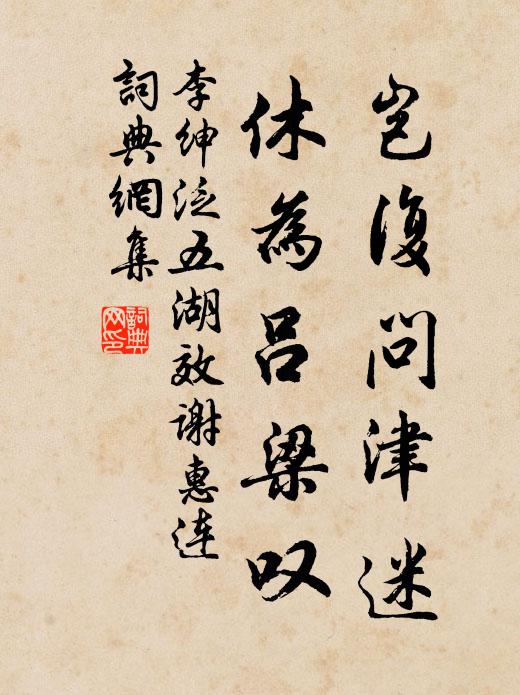 岂復问津迷
休為吕梁叹
李绅泛五湖效谢惠连
詞典網集
詞典網印